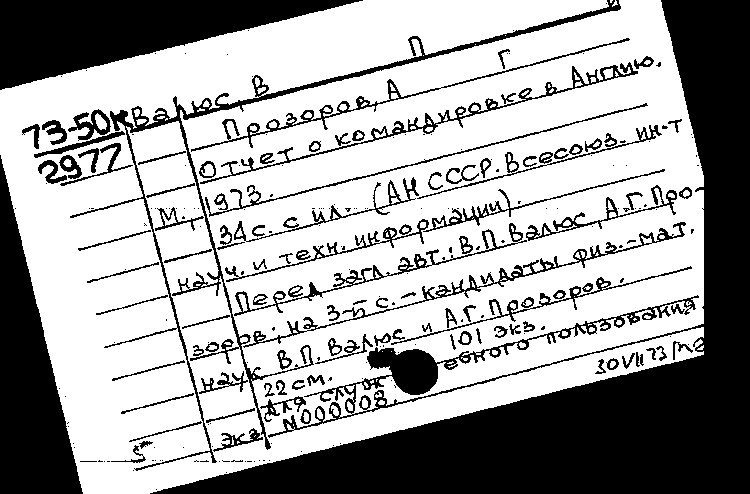 73-50к
2977
Валюс, В П
Прозоров, А Г
Отчет о командировке в Англию.
М., 1973.
34 с. с ил. (АН СССР. Всесоюз. ин-т
науч. и техн. информации).
Перед загл. авт.: В.П. Валюс, А.Г. Про-
зоров; на 3-й с. - кандидаты физ.-мат.
наук В.П. Валюс и А.Г. Прозоров.
22 см. 101 экз.
Для служебного пользования.
экз N000008.
5
30 VII 73